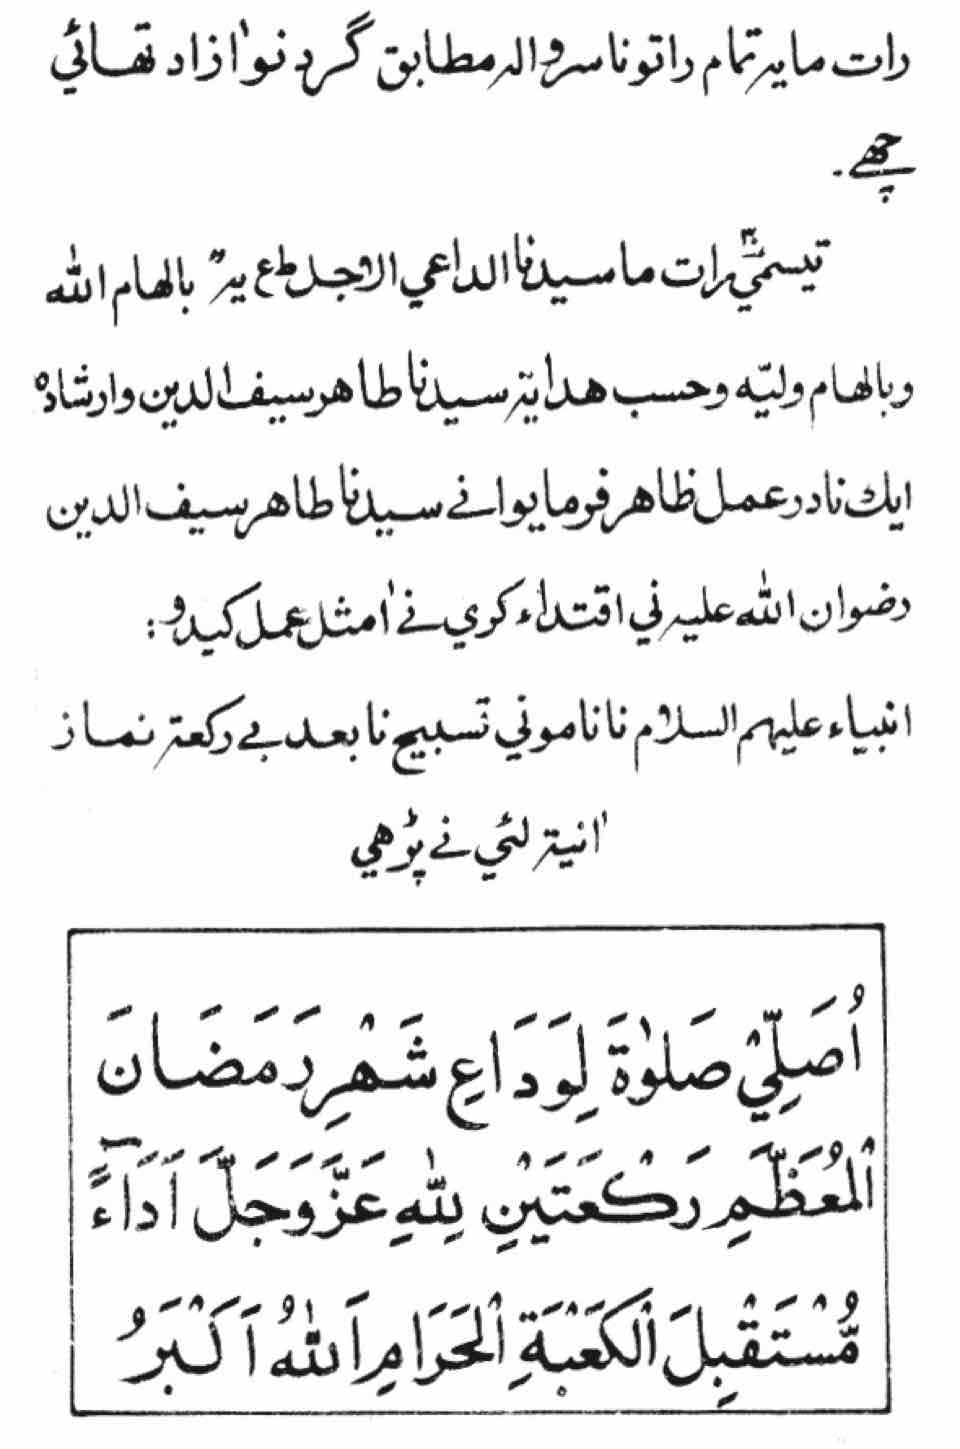 رات ما يه تمام راتو نا سرواله مطابق گردنو اٰزاد تهائي
چهے.
تيسمي رات ما سيدنا الداعي الاجل ط ع يه بالهام الله
وبالهام وليّه وحسب هداية سيدنا طاهر سيف الدين وارشاده
ايك نادر عمل ظاهر فرمايو انے سيدنا طاهر سيف الدين
رضوان الله عليه ني اقتداء كري نے اٰمثل عمل كيدو:
انبياء عليهم السلام نا ناموني تسبيح نا بعد بے ركعة نماز
اٰ نية لئي نے پڑهي
اُصَلِّيْ صَلوٰةَ لِوَدَاعِ شَهْرِ رَمَضَانَ
اْلمُعَظَّمِ رَكْعَتَيْنِ لِلّٰهِ عَزَّ وَجَلَّ اَدَاءً
مُّسْتَقْبِلَ اْلكَعْبَةِ اْلحَرَامِ اَللّٰهُ اَكْبَرُ